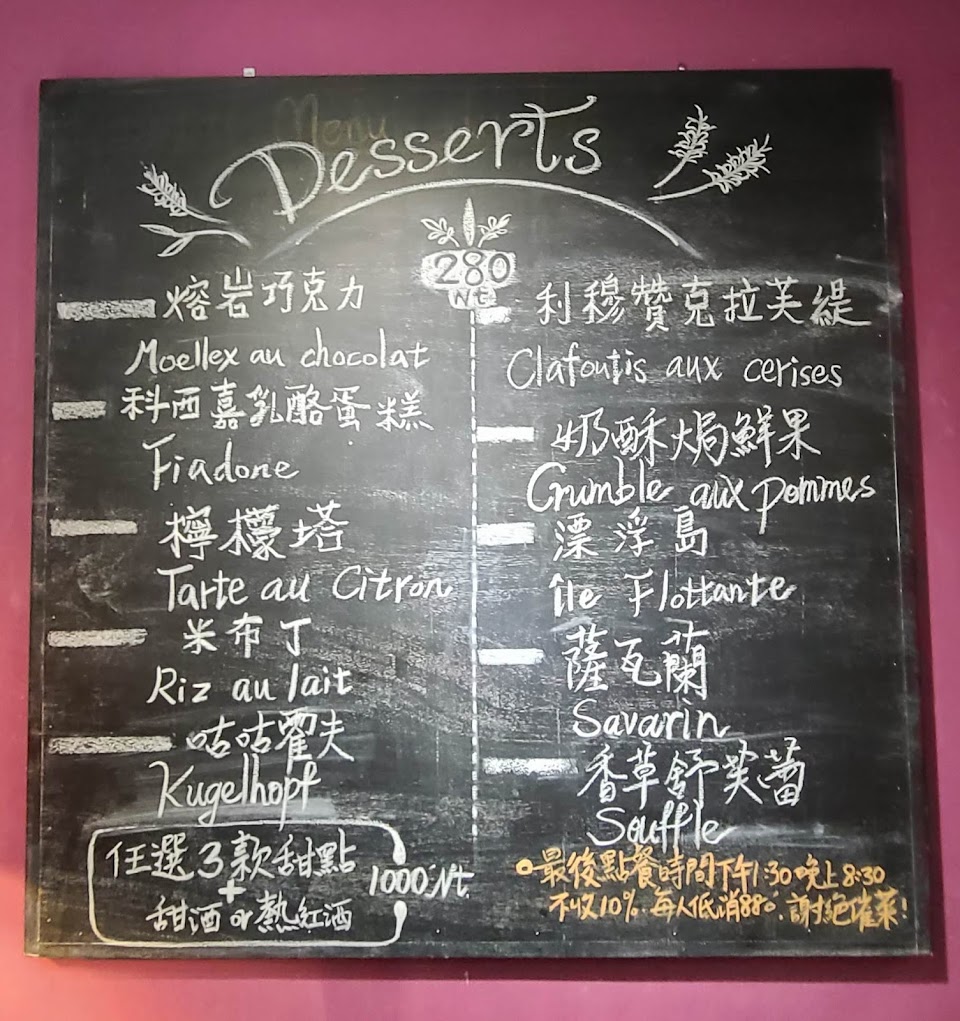 Menu
Desserts
280
Nt
熔岩巧克力
Moellex au chocolat
科西嘉乳酪蛋糕
Fiadone
檸檬塔
Tarte au Citron
米布丁
Riz au lait
咕咕霍夫
Kugelhopf
任選3款甜點
+
甜酒 or 熱紅酒
1000Nt.
利穆贊克拉芙緹
Clafoutis aux cerises
奶酥焗鮮果
Crumble aux pommes
漂浮島
île Flottante
薩瓦蘭
Savarin
香草舒芙蕾
Souffle
最後點餐時間下午1:30晚上8:30
不收10%.每人低消880.謝絕催菜!